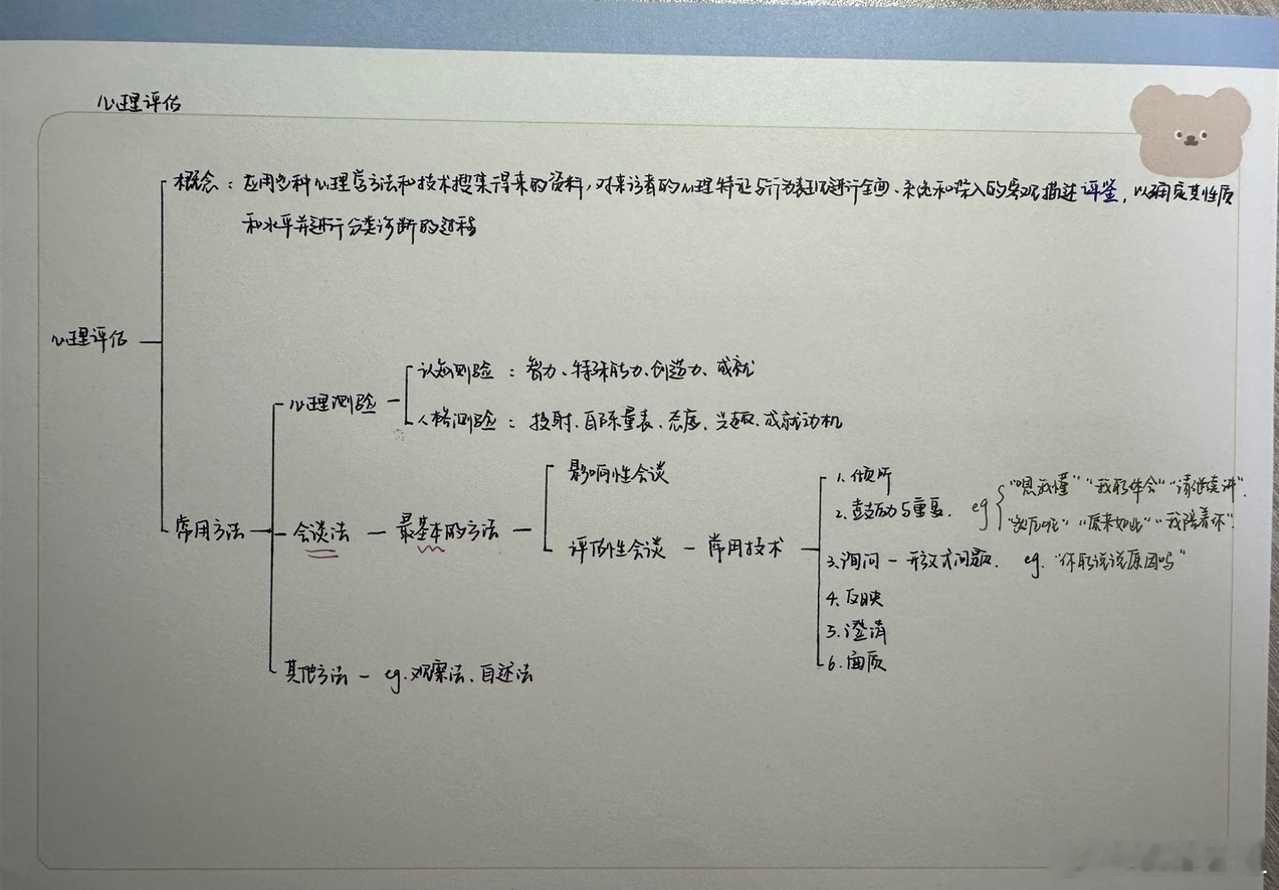 心理评估
概念：应用多种心理学方法和技术搜集得来的资料，对来访者的心理特征与行为表现进行全面、系统和深入的客观描述评鉴，以确定其性质
和水平并进行分类诊断的过程
心理评估
认知测验：智力、特殊能力、创造力、成就
心理测验
人格测验：投射、自陈量表、态度、兴趣、成就动机
影响性会谈
1.倾听
2.鼓励与重复. eg "嗯我懂" "我能体会" "请继续讲".
"然后呢" "原来如此" "我陪着你"
常用方法 会谈法 — 最基本的方法 — 评估性会谈 — 常用技术
3.询问 — 开放式问题. eg. "你能说说原因吗"
4.反映
5.澄清
6.面质
其他方法 — eg.观察法、自述法